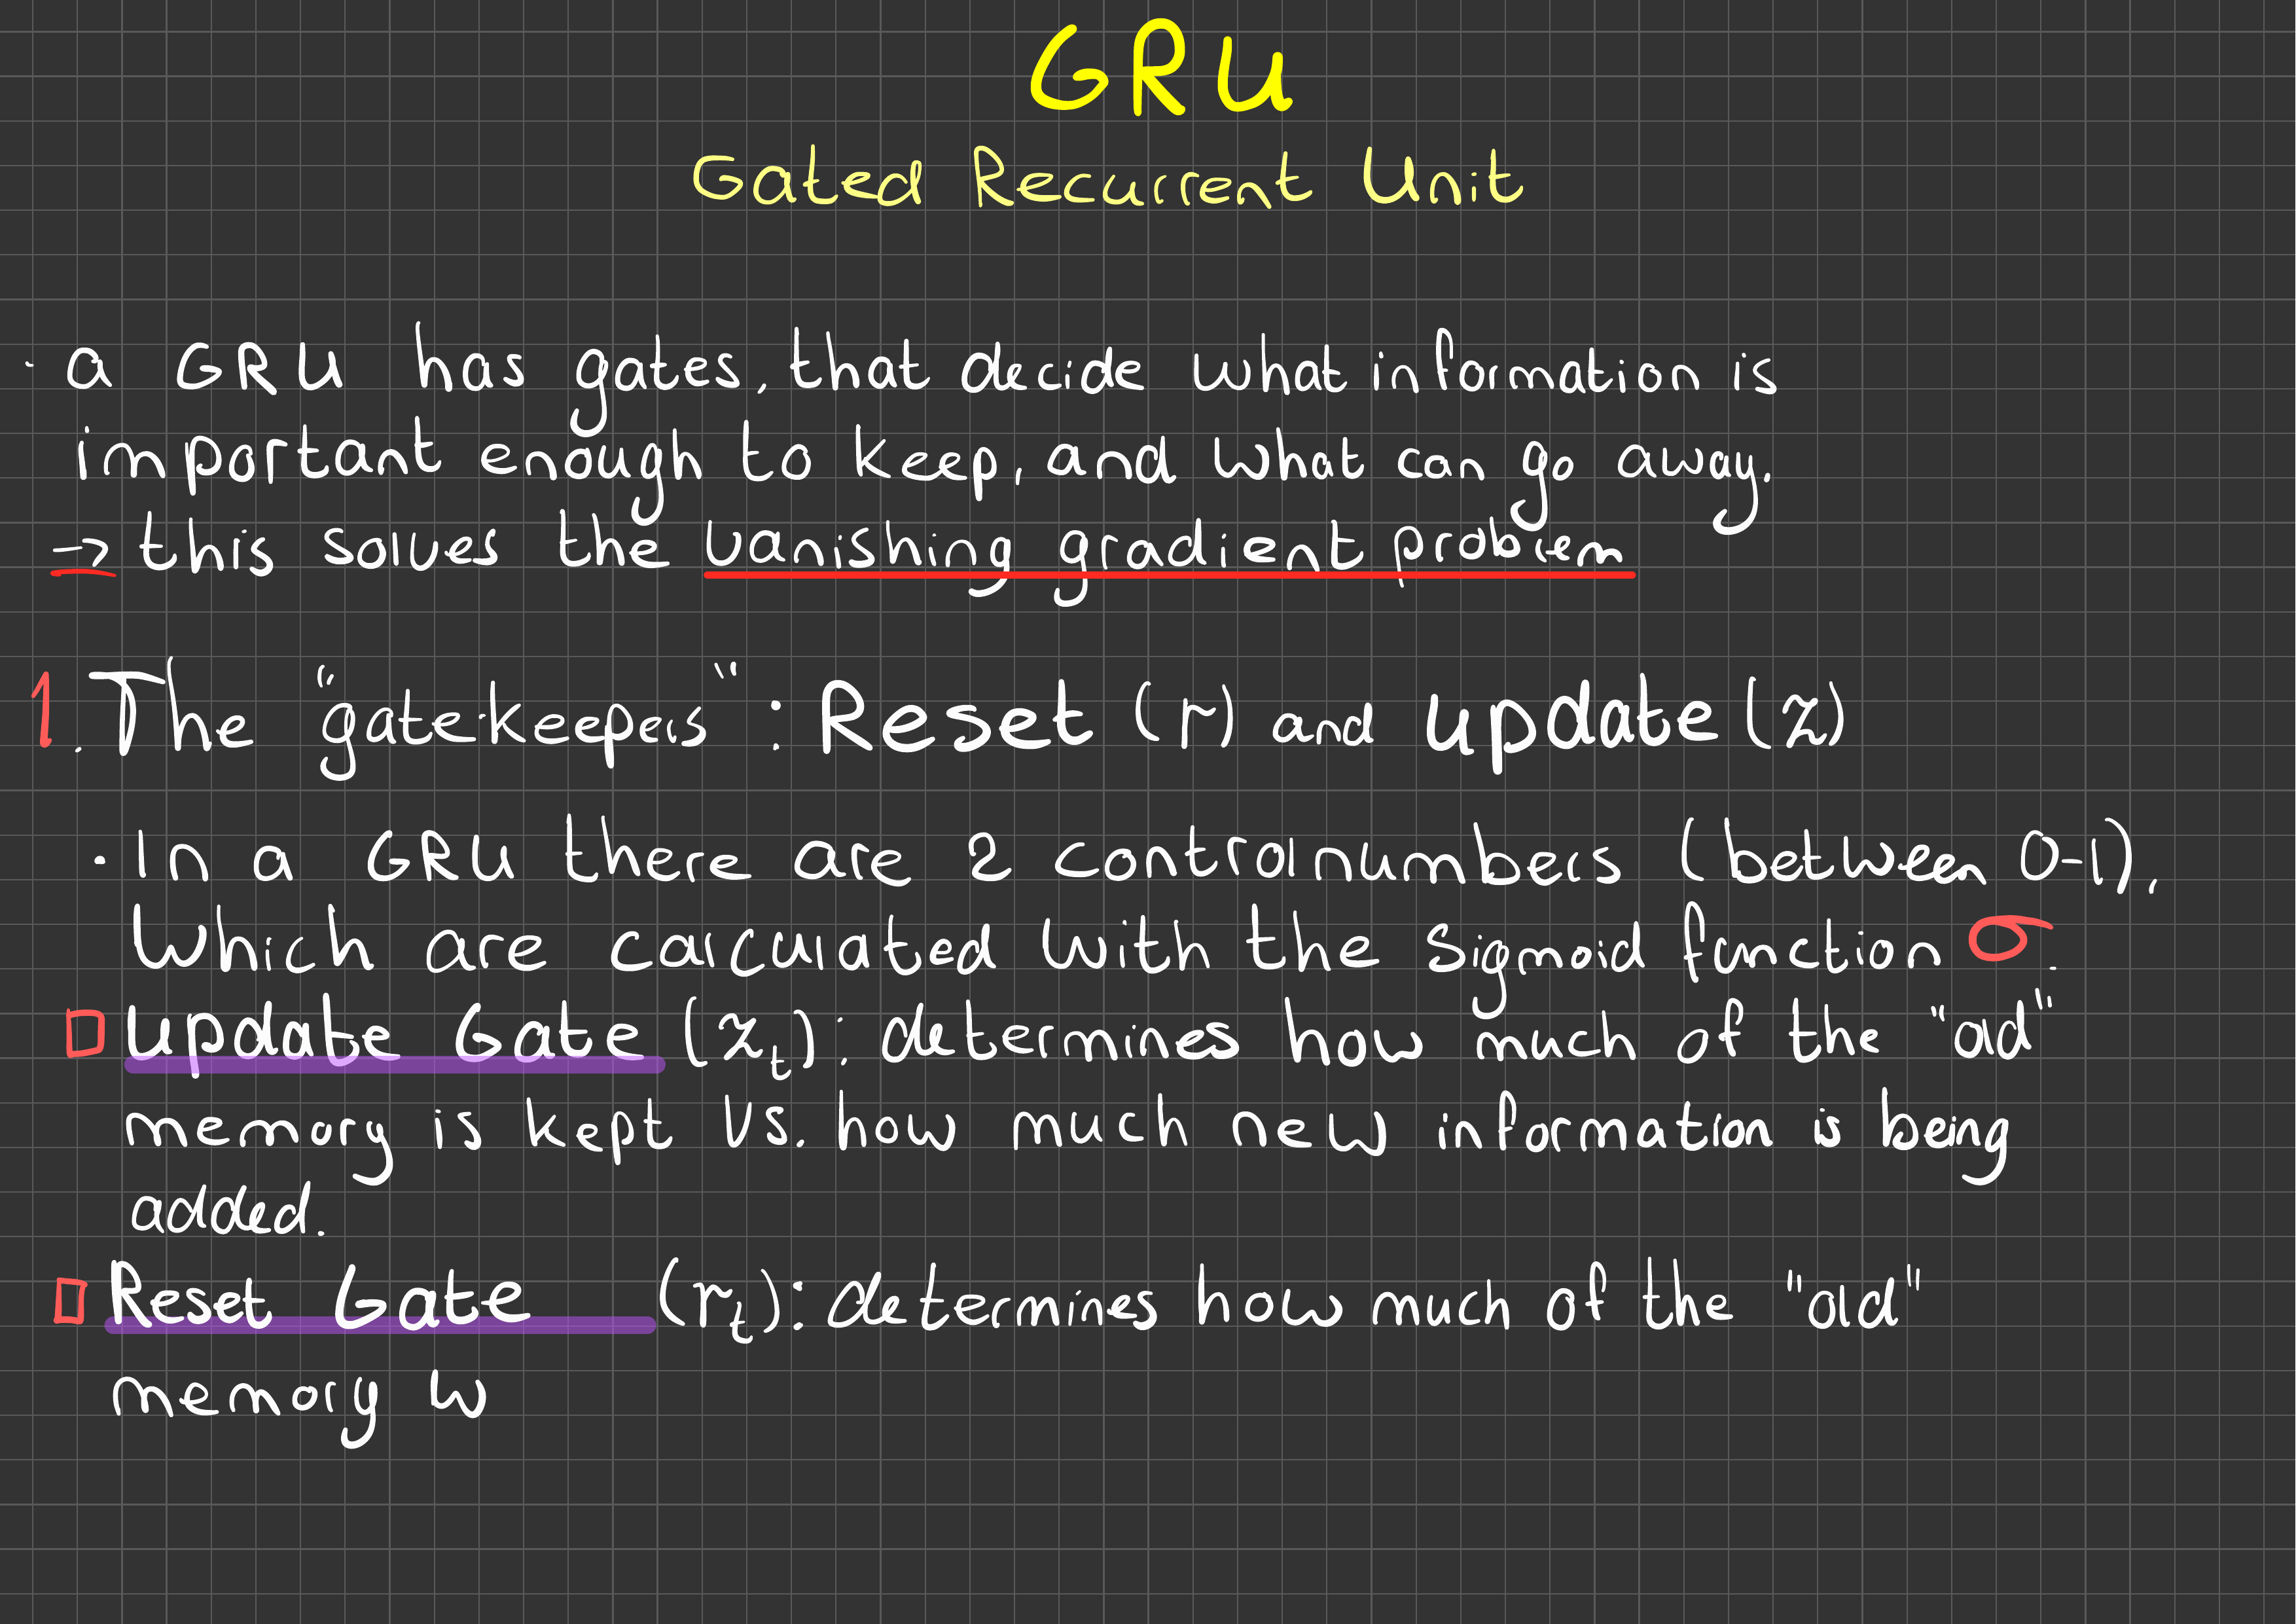 GRU
Gated Recurrent Unit
· a GRU has gates, that decide what information is
important enough to keep, and what can go away.
→ this solves the vanishing gradient problem
1. The "gatekeepers" : Reset (r) and update (z)
· In a GRU there are 2 controlnumbers (between 0-1),
Which are calculated with the sigmoid function σ.
□ Update Gate (z_t): determines how much of the "old"
memory is kept vs. how much new information is being
added.
□ Reset Gate (r_t): determines how much of the "old"
memory w